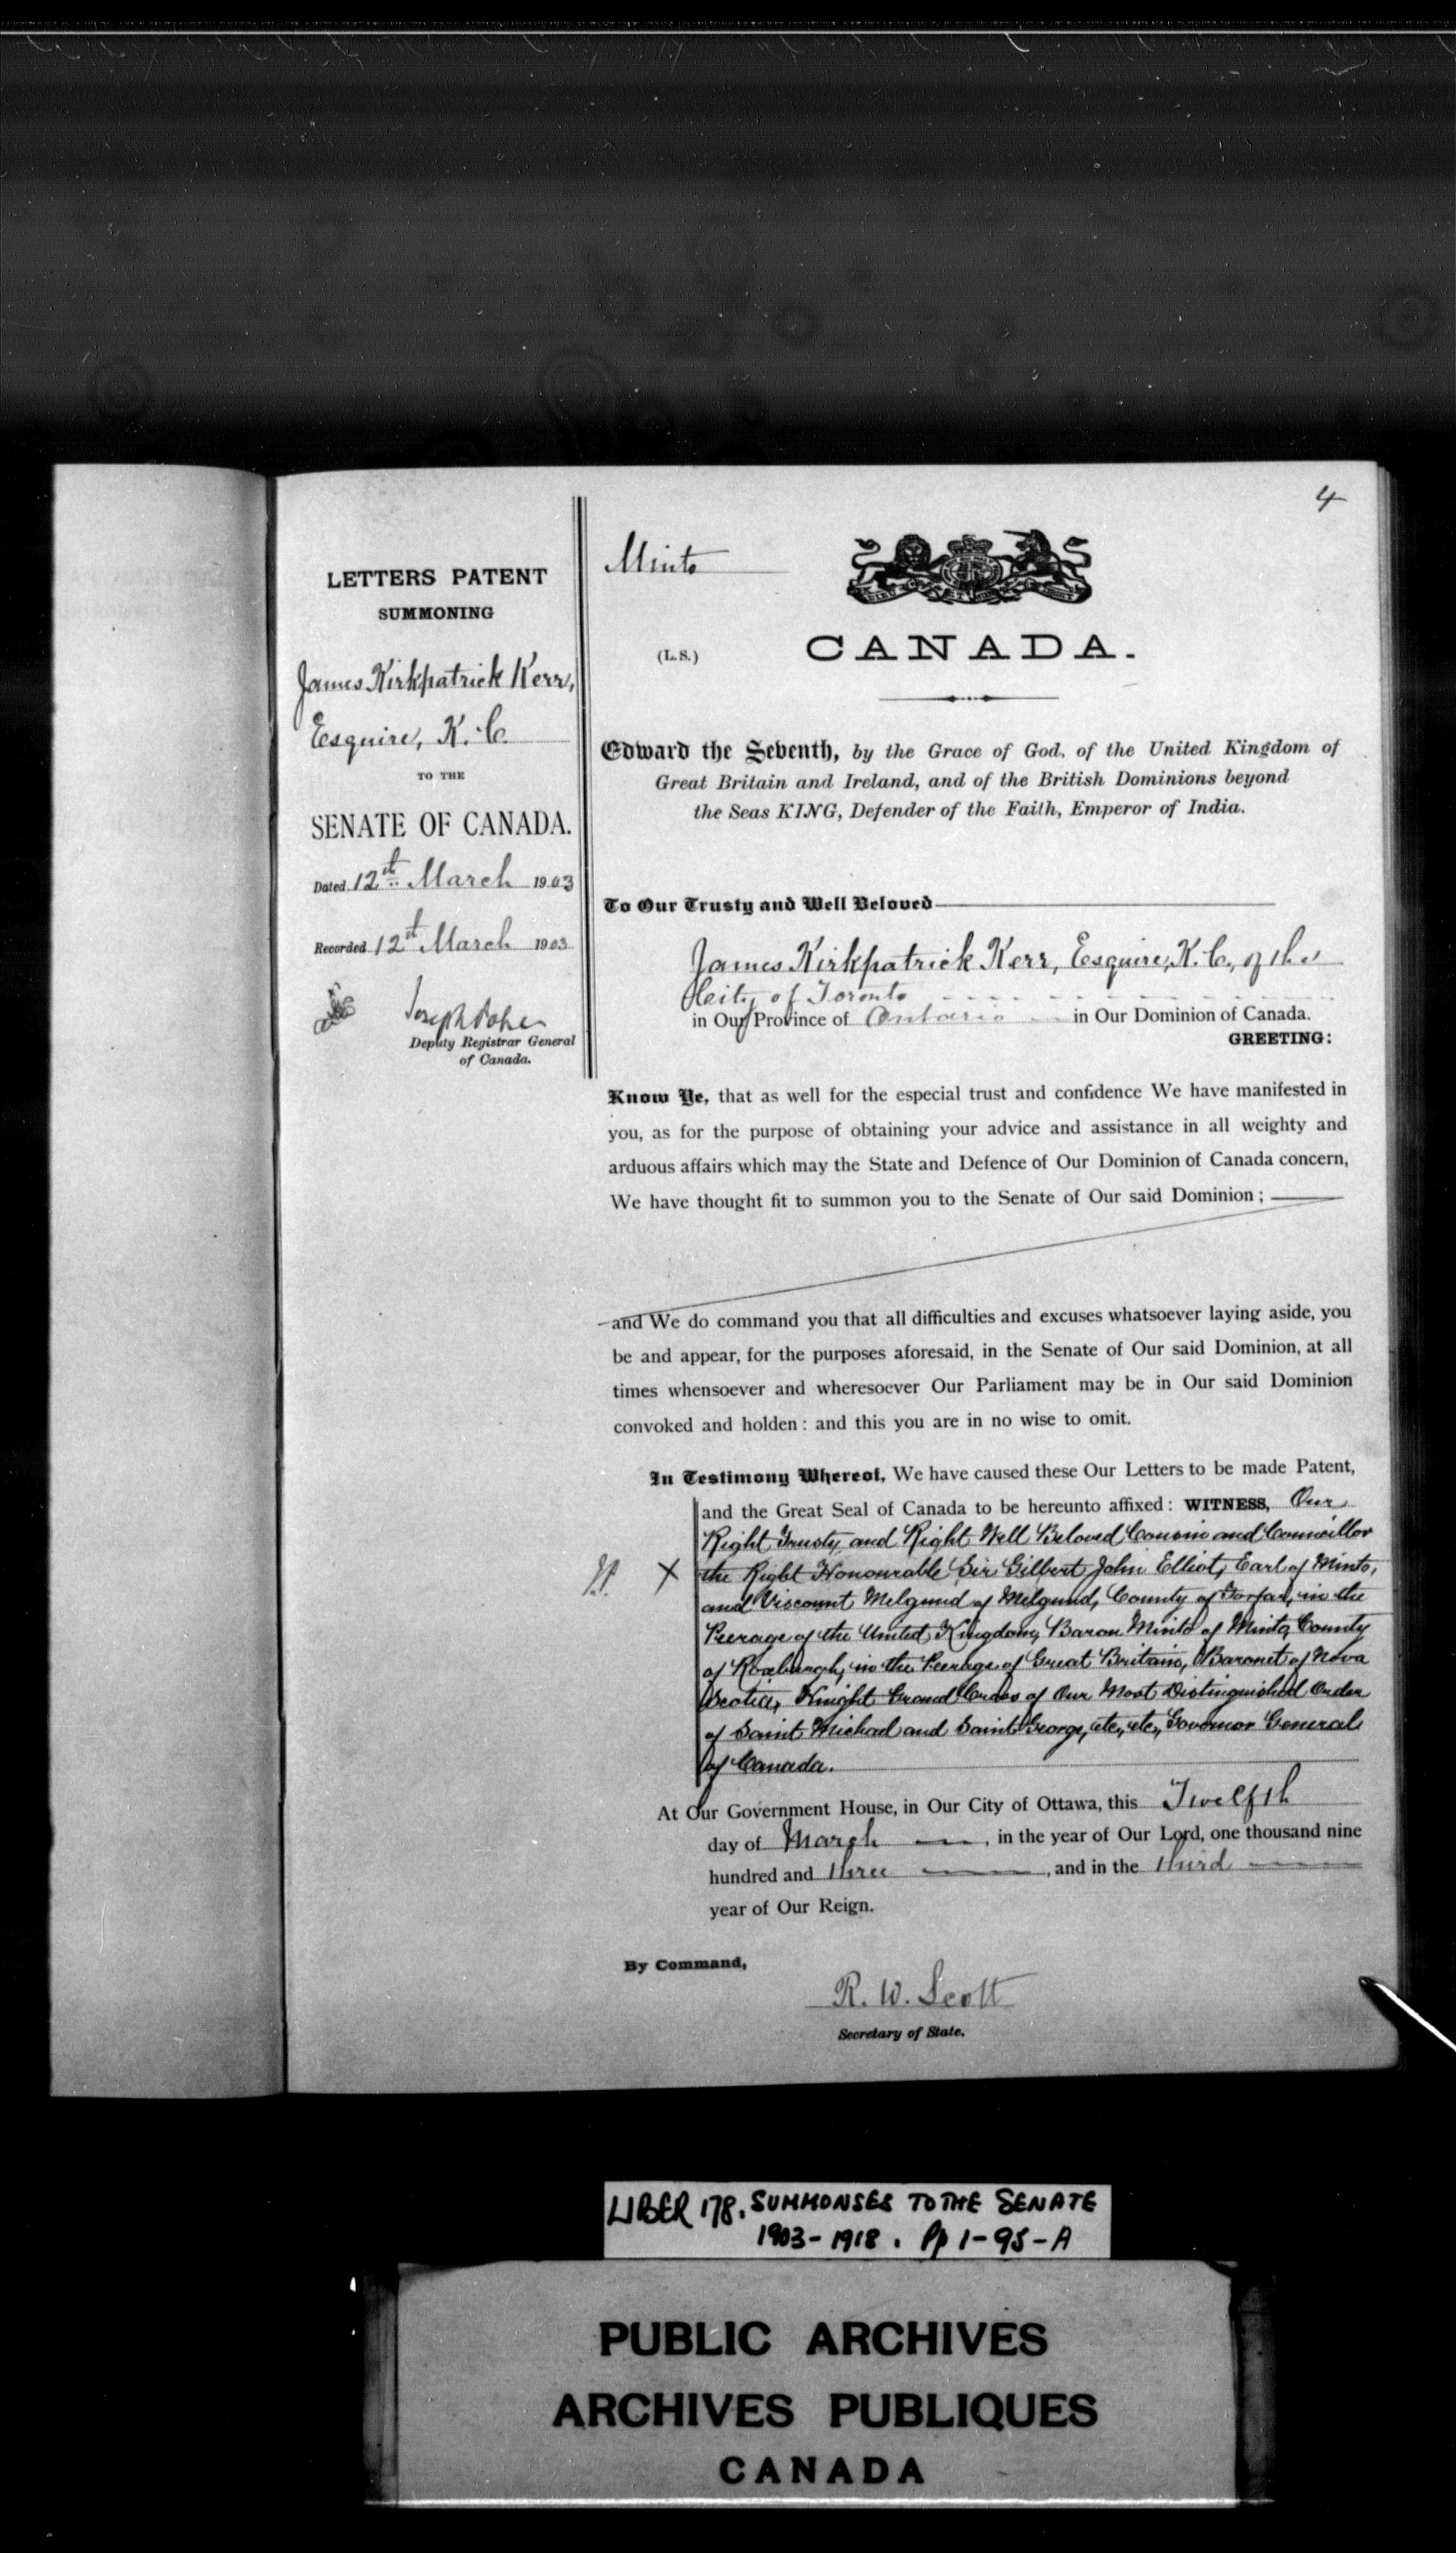 4
LETTERS PATENT
SUMMONING
James Kirkpatrick Kerr,
Esquire, K.C.
TO THE
SENATE OF CANADA.
Dated 12th March 1903
Recorded 12th March 1903
Joseph Pope
Deputy Registrar General
of Canada.
Minto
(L.S.)
CANADA.
Edward the Seventh, by the Grace of God, of the United Kingdom of
Great Britain and Ireland, and of the British Dominions beyond
the Seas KING, Defender of the Faith, Emperor of India.
To Our Trusty and Well Beloved
James Kirkpatrick Kerr, Esquire, K.C., of the
City of Toronto
in Our Province of Ontario in Our Dominion of Canada.
GREETING:
Know Ye, that as well for the especial trust and confidence We have manifested in
you, as for the purpose of obtaining your advice and assistance in all weighty and
arduous affairs which may the State and Defence of Our Dominion of Canada concern,
We have thought fit to summon you to the Senate of Our said Dominion;
and We do command you that all difficulties and excuses whatsoever laying aside, you
be and appear, for the purposes aforesaid, in the Senate of Our said Dominion, at all
times whensoever and wheresoever Our Parliament may be in Our said Dominion
convoked and holden: and this you are in no wise to omit.
In Testimony Whereof, We have caused these Our Letters to be made Patent,
and the Great Seal of Canada to be hereunto affixed: WITNESS, Our
Right Trusty and Right Well Beloved Cousin and Councillor
X the Right Honourable Sir Gilbert John Elliot, Earl of Minto,
and Viscount Melgund of Melgund, County of Forfar, in the
Peerage of the United Kingdom, Baron Minto of Minto, County
of Roxburgh, in the Peerage of Great Britain, Baronet of Nova
Scotia, Knight Grand Cross of Our Most Distinguished Order
of Saint Michael and Saint George, etc., etc., Governor General
of Canada.
At Our Government House, in Our City of Ottawa, this Twelfth
day of March, in the year of Our Lord, one thousand nine
hundred and three, and in the third
year of Our Reign.
By Command,
R. W. Scott
Secretary of State.
LIBER 178. SUMMONSES TO THE SENATE
1903-1918. Pp 1-95-A
PUBLIC ARCHIVES
ARCHIVES PUBLIQUES
CANADA